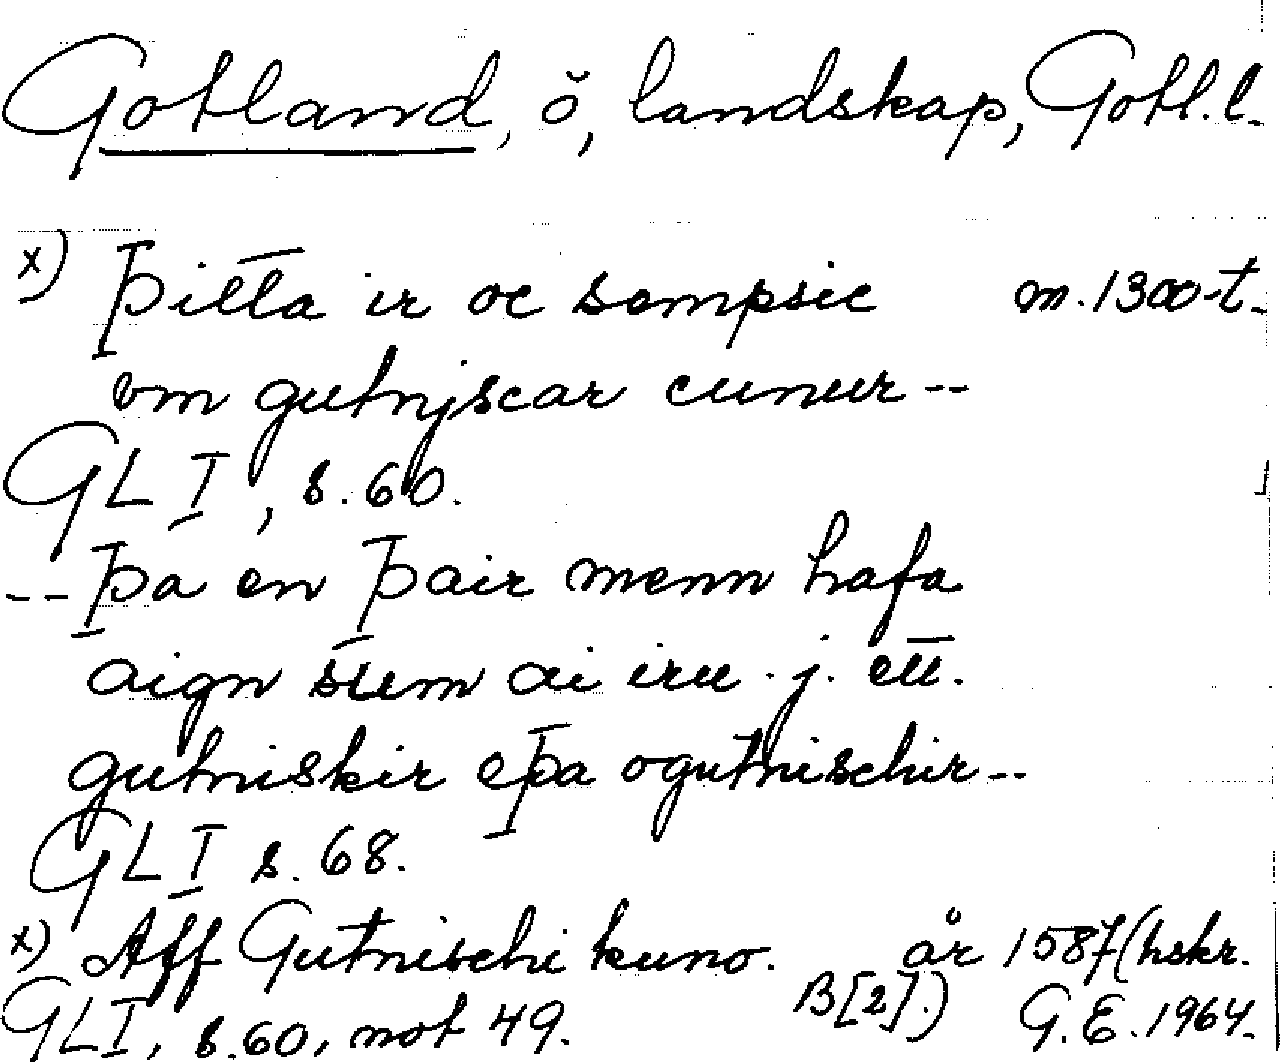 Gotland, ö, landskap, Gotl. l.
x) Þitta ir oc sempsic m. 1300-t.
vm gutnjscar cunur --
GL I, s. 60.
-- Þa en þair menn hafa
aign sum ai iru . j. ett.
gutniskir eþa ogutnischir --
GL I s. 68.
x) Aff Gutnischi kuno. år 1587 (hskr.
GL I, s. 60, not 49. B[2].) G.E. 1964.